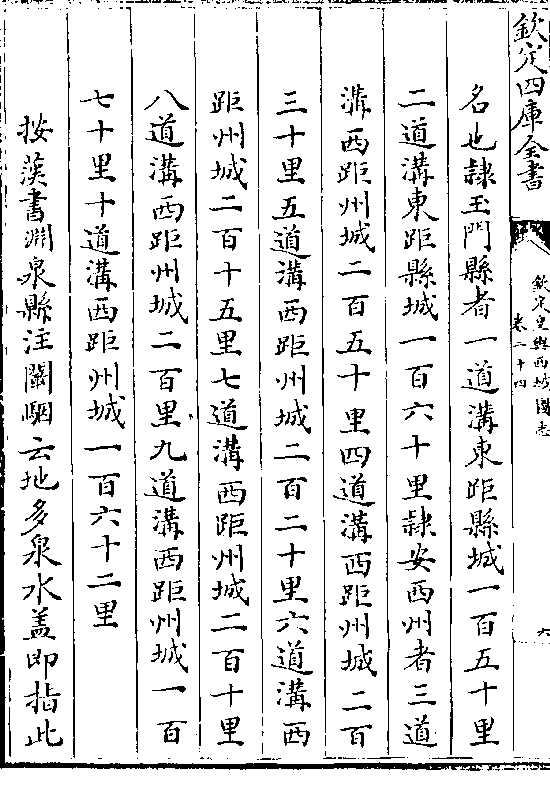 欽定四庫全書
欽定皇輿西域圖志
卷二十四
六
名也隷玉門縣者一道溝東距縣城一百五十里
二道溝東距縣城一百六十里隷安西州者三道
溝西距州城二百五十里四道溝西距州城二百
三十里五道溝西距州城二百二十里六道溝西
距州城二百十五里七道溝西距州城二百十里
八道溝西距州城二百里九道溝西距州城一百
七十里十道溝西距州城一百六十二里
按漢書淵泉縣注闞駰云地多泉水盖即指此